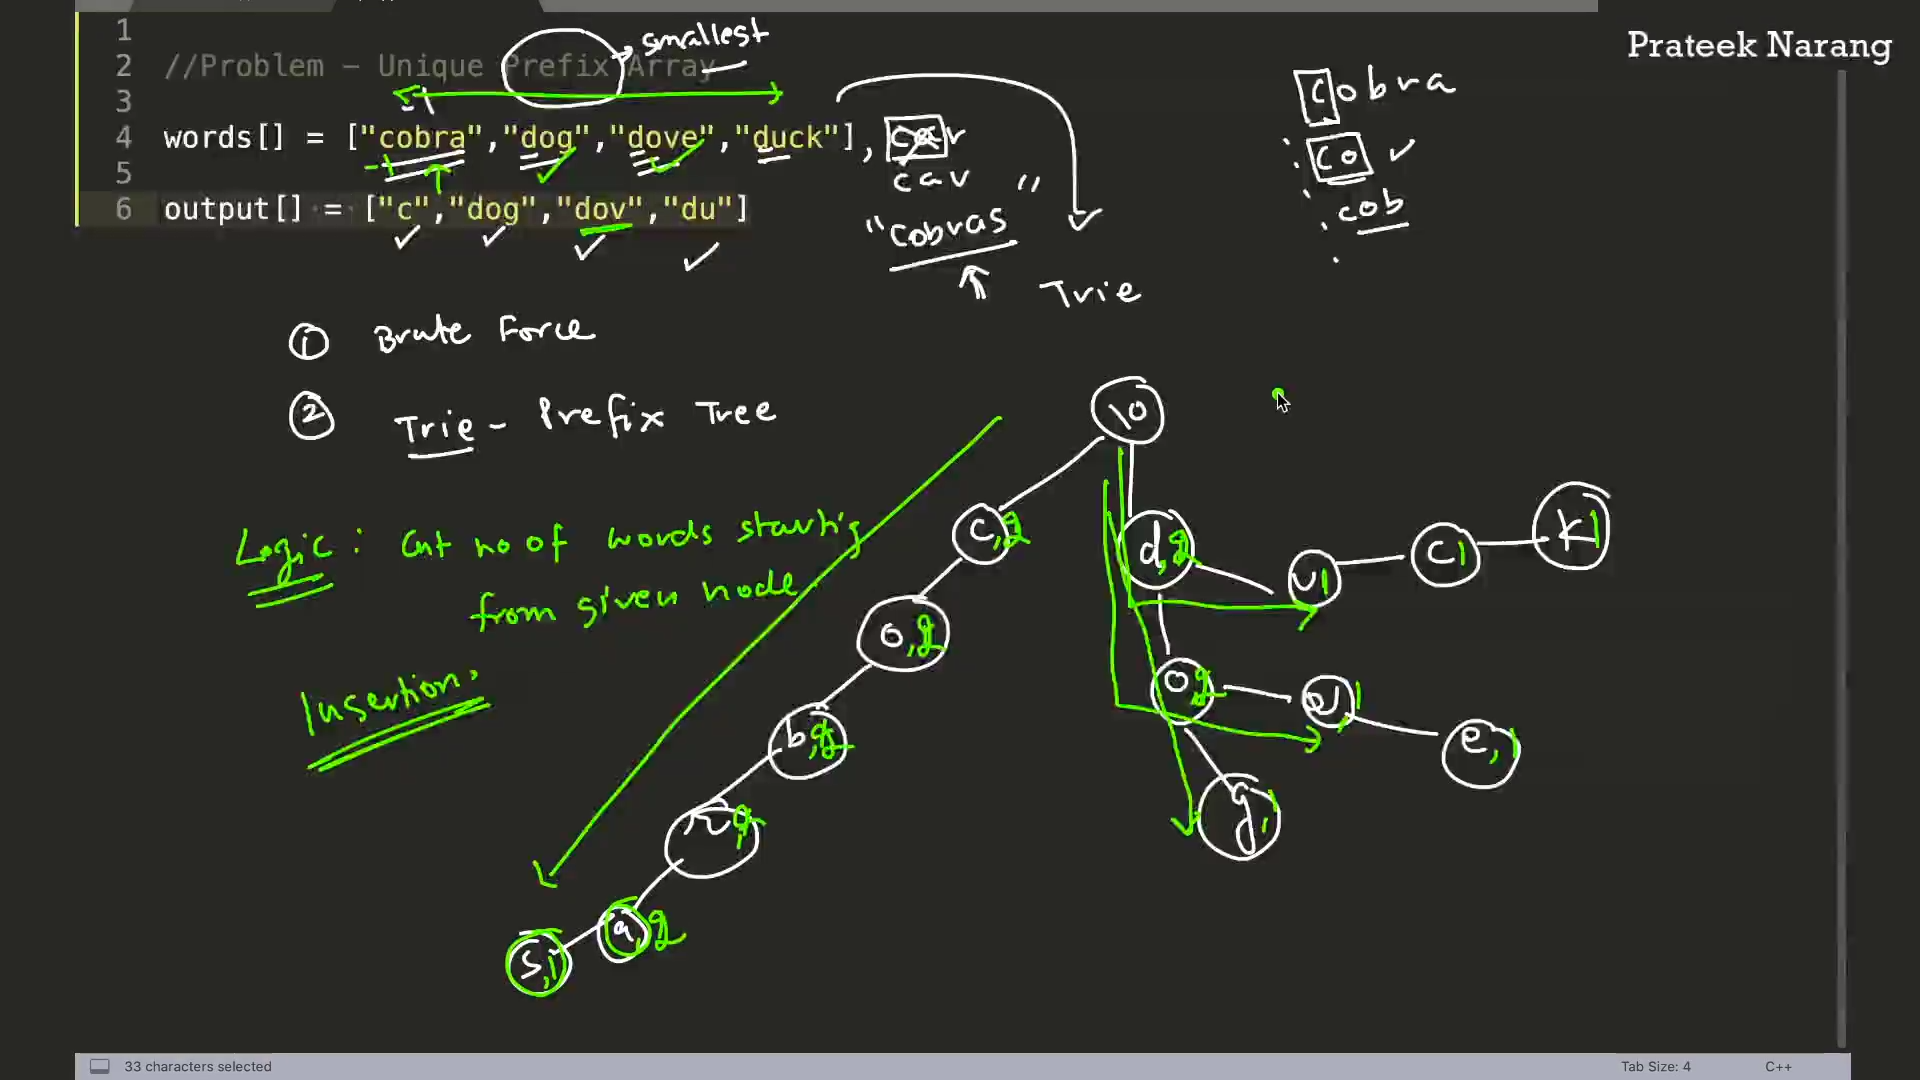 Prateek Narang
1
2 //Problem – Unique Prefix Array
3
4 words[] = ["cobra","dog","dove","duck"],
5
6 output[] = ["c","dog","dov","du"]
smallest
car
"cobras"
Trie
Cobra
Co
cob
1 Brute Force
2 Trie - Prefix Tree
Logic : Cnt no of words starting
from given node
Insertion
\0
c,2
d,
u1
c1
k1
o,2
o,
v,1
e,1
b,2
g,1
r,2
a,2
s,1
33 characters selected
Tab Size: 4
C++